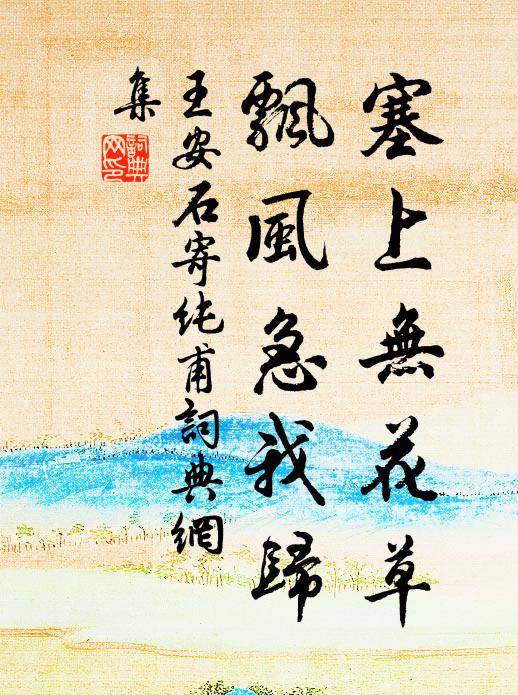 塞上無花草
飄風急我歸
王安石寄純甫詞典網
集
詞典网印